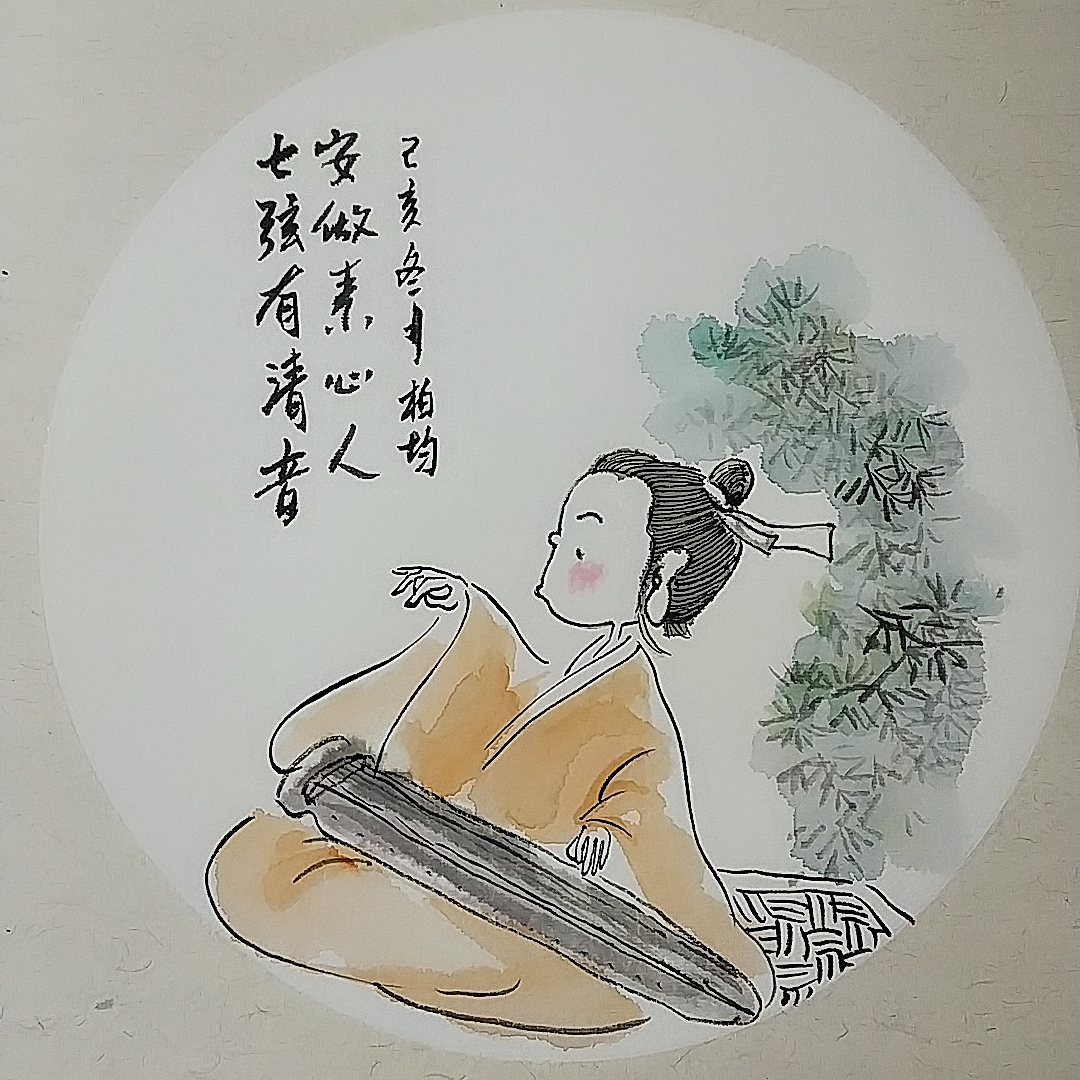 七弦有清音
安做素心人
己亥冬月柏均